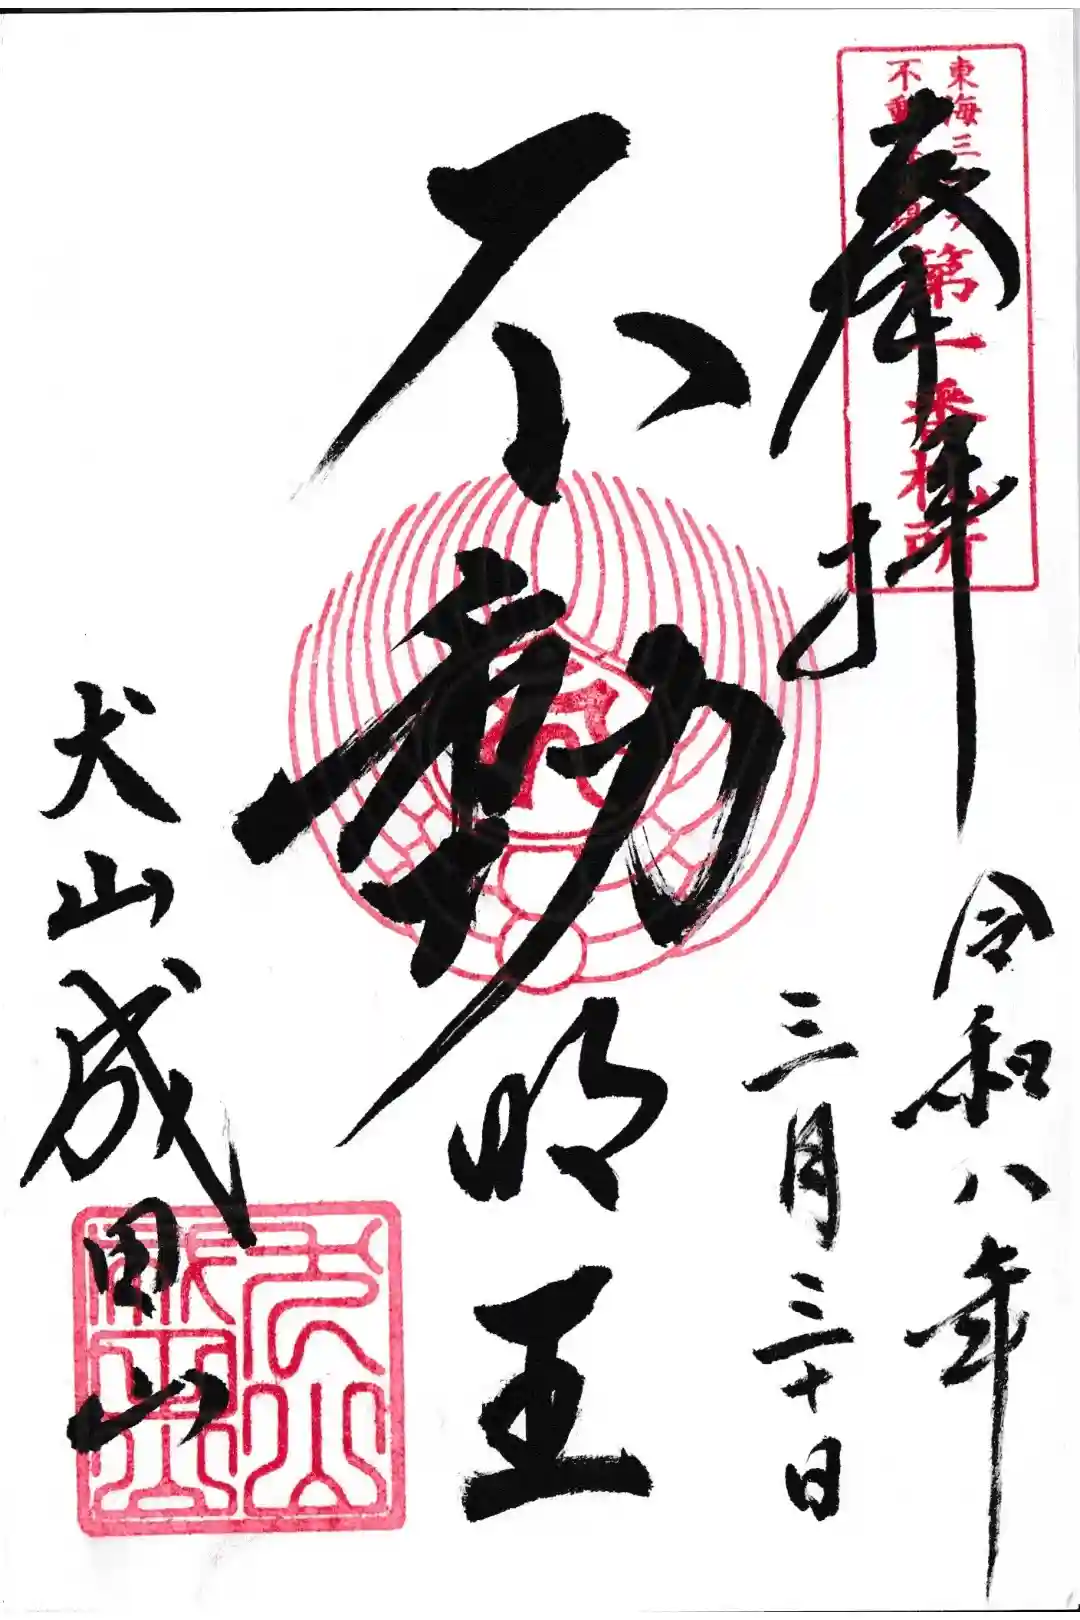 奉拝
東海三十六
不動尊霊場
第一番札所
令和八年
三月三十日
不動明王
犬山成田山